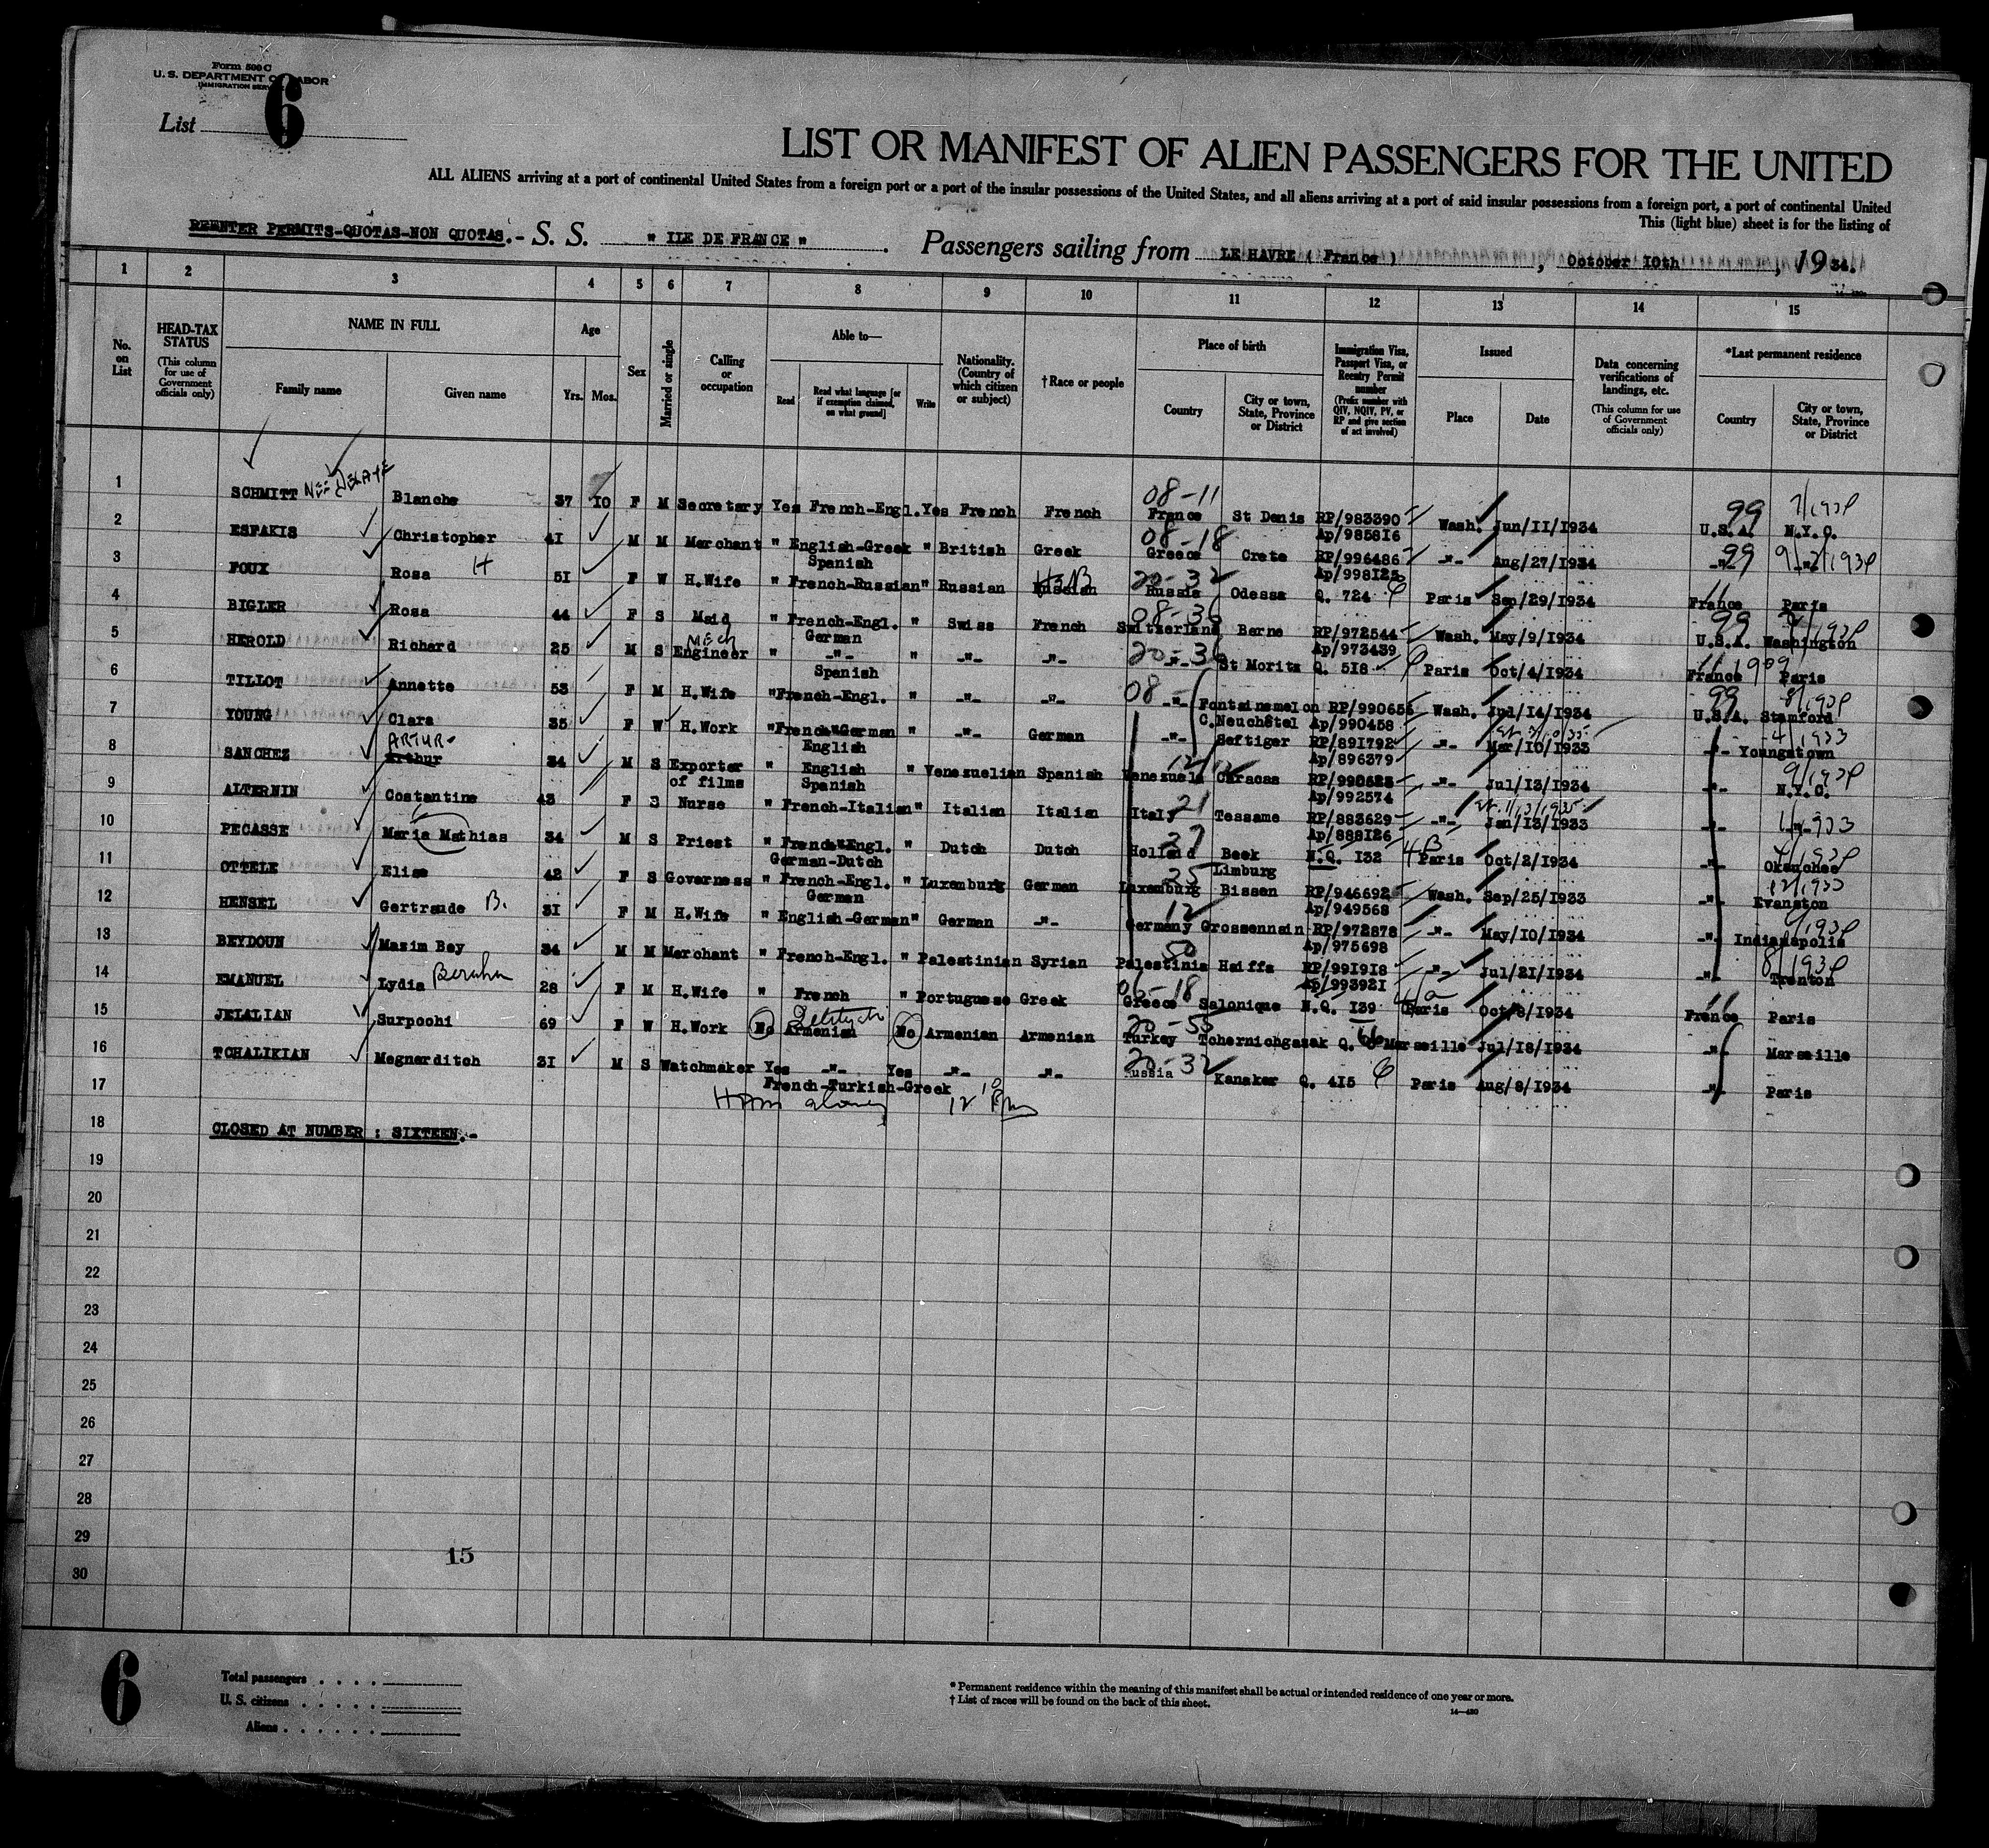 Form 500 C
U. S. DEPARTMENT OF LABOR
IMMIGRATION SERVICE
List 6
LIST OR MANIFEST OF ALIEN PASSENGERS FOR THE UNITED
ALL ALIENS arriving at a port of continental United States from a foreign port or a port of the insular possessions of the United States, and all aliens arriving at a port of said insular possessions from a foreign port, a port of continental United
This (light blue) sheet is for the listing of
REENTER PERMITS-QUOTAS-NON QUOTAS.- S. S. " ILE DE FRANCE " . Passengers sailing from LE HAVRE ( France ) , October 10th , 1934.
1 2 3 4 5 6 7 8 9 10 11 12 13 14 15
No. on List
HEAD-TAX STATUS
(This column for use of Government officials only)
NAME IN FULL
Family name
Given name
Age
Yrs. Mos.
Sex
Married or single
Calling or occupation
Able to—
Read
Read what language [or if exemption claimed, on what ground]
Write
Nationality. (Country of which citizen or subject)
† Race or people
Place of birth
Country
City or town, State, Province or District
Immigration Visa, Passport Visa, or Reentry Permit number
(Prefix number with QIV, NQIV, PV, or RP and give section of act involved)
Issued
Place
Date
Data concerning verifications of landings, etc.
(This column for use of Government officials only)
*Last permanent residence
Country
City or town, State, Province or District
1 SCHMITT NEE Blanche 37 10 F M Secretary Yes French-Engl. Yes French French 08-11 France St Denis RP/983390 Ap/985816 Wash. Jun/11/1934 99 U.S.A. 7/1934 N.Y.C.
2 ESFAKIS Christopher 41 M M Merchant " English-Greek Spanish " British Greek 08-18 Greece Crete RP/996486 Ap/998125 -"- Aug/27/1934 -"- 99 -"- 9/1934
3 FOUX Rosa H 51 F W H.Wife " French-Russian " Russian Russian 20-32 Russia Odessa Q. 724 Paris Sep/29/1934 France Paris
4 BIGLER Rosa 44 F S Maid " French-Engl. German " Swiss French 08-36 Switzerland Berne RP/972544 Ap/973439 Wash. May/9/1934 99 U.S.A. Washington
5 HEROLD Richard 25 M S Mech Engineer " -"- Spanish " -"- -"- 20-36 -"- St Moritz Q. 518 Paris Oct/4/1934 France 1909 Paris
6 TILLOT Annette 53 F M H.Wife " French-Engl. " -"- -"- 08- -"- Fontainemelon C.Neuchâtel RP/990656 Ap/990458 Wash. Jul/14/1934 99 U.S.A. 8/1934 Stamford
7 YOUNG Clara 35 F W H.Work " French-German English " -"- German -"- Seftiger RP/891792 Ap/896379 -"- Mar/10/1933 -"- 4/1933 Youngstown
8 SANCHEZ ARTUR- Arthur 34 M S Exporter of films " English Spanish " Venezuelian Spanish Venezuela Caracas RP/990623 Ap/992574 -"- Jul/13/1934 -"- 9/1934 N.Y.C.
9 ALTERNIN Costantina 43 F S Nurse " French-Italian " Italian Italian Italy 21 Tessame RP/883629 Ap/888126 -"- Jan/13/1933 -"- -"-
10 PECASSE Maria Mathias 34 M S Priest " French-Engl. German-Dutch " Dutch Dutch Holland 27 Beek Limburg N.Q. 132 Paris Oct/2/1934 -"- Okauchee
11 OTTELE Elise 42 F S Governess " French-Engl. German " Luxemburg German Luxemburg 25 Bissen RP/946692 Ap/949568 Wash. Sep/25/1933 -"- 12/1933 Evanston
12 HENSEL Gertraude B. 31 F M H.Wife " English-German " German -"- Germany 12 Grossennsin RP/972878 Ap/975698 -"- May/10/1934 -"- Indianapolis
13 BEYDOUN Mazim Bey 34 M M Merchant " French-Engl. " Palestinian Syrian Palestinia 50 Haiffa RP/991918 Ap/993921 -"- Jul/21/1934 -"- 8/1934 Trenton
14 EMANUEL Lydia Beraha 28 F M H.Wife " French " Portuguese Greek 06-18 Greece Salonique N.Q. 139 Paris Oct/8/1934 France Paris
15 JELALIAN Surpoohi 69 F W H.Work No Armenian No Armenian Armenian 20-55 Turkey Tchernichgazak Q. Marseille Jul/18/1934 -"- Marseille
16 TCHALIKIAN Megnerditch 31 M S Watchmaker Yes -"- French-Turkish-Greek Yes -"- -"- 20-32 Russia Kanaker Q. 415 Paris Aug/8/1934 -"- Paris
17
18 CLOSED AT NUMBER : SIXTEEN.-
19
20
21
22
23
24
25
26
27
28
29
15
30
6
Total passengers
U. S. citizens
Aliens
* Permanent residence within the meaning of this manifest shall be actual or intended residence of one year or more.
† List of races will be found on the back of this sheet.
14—420